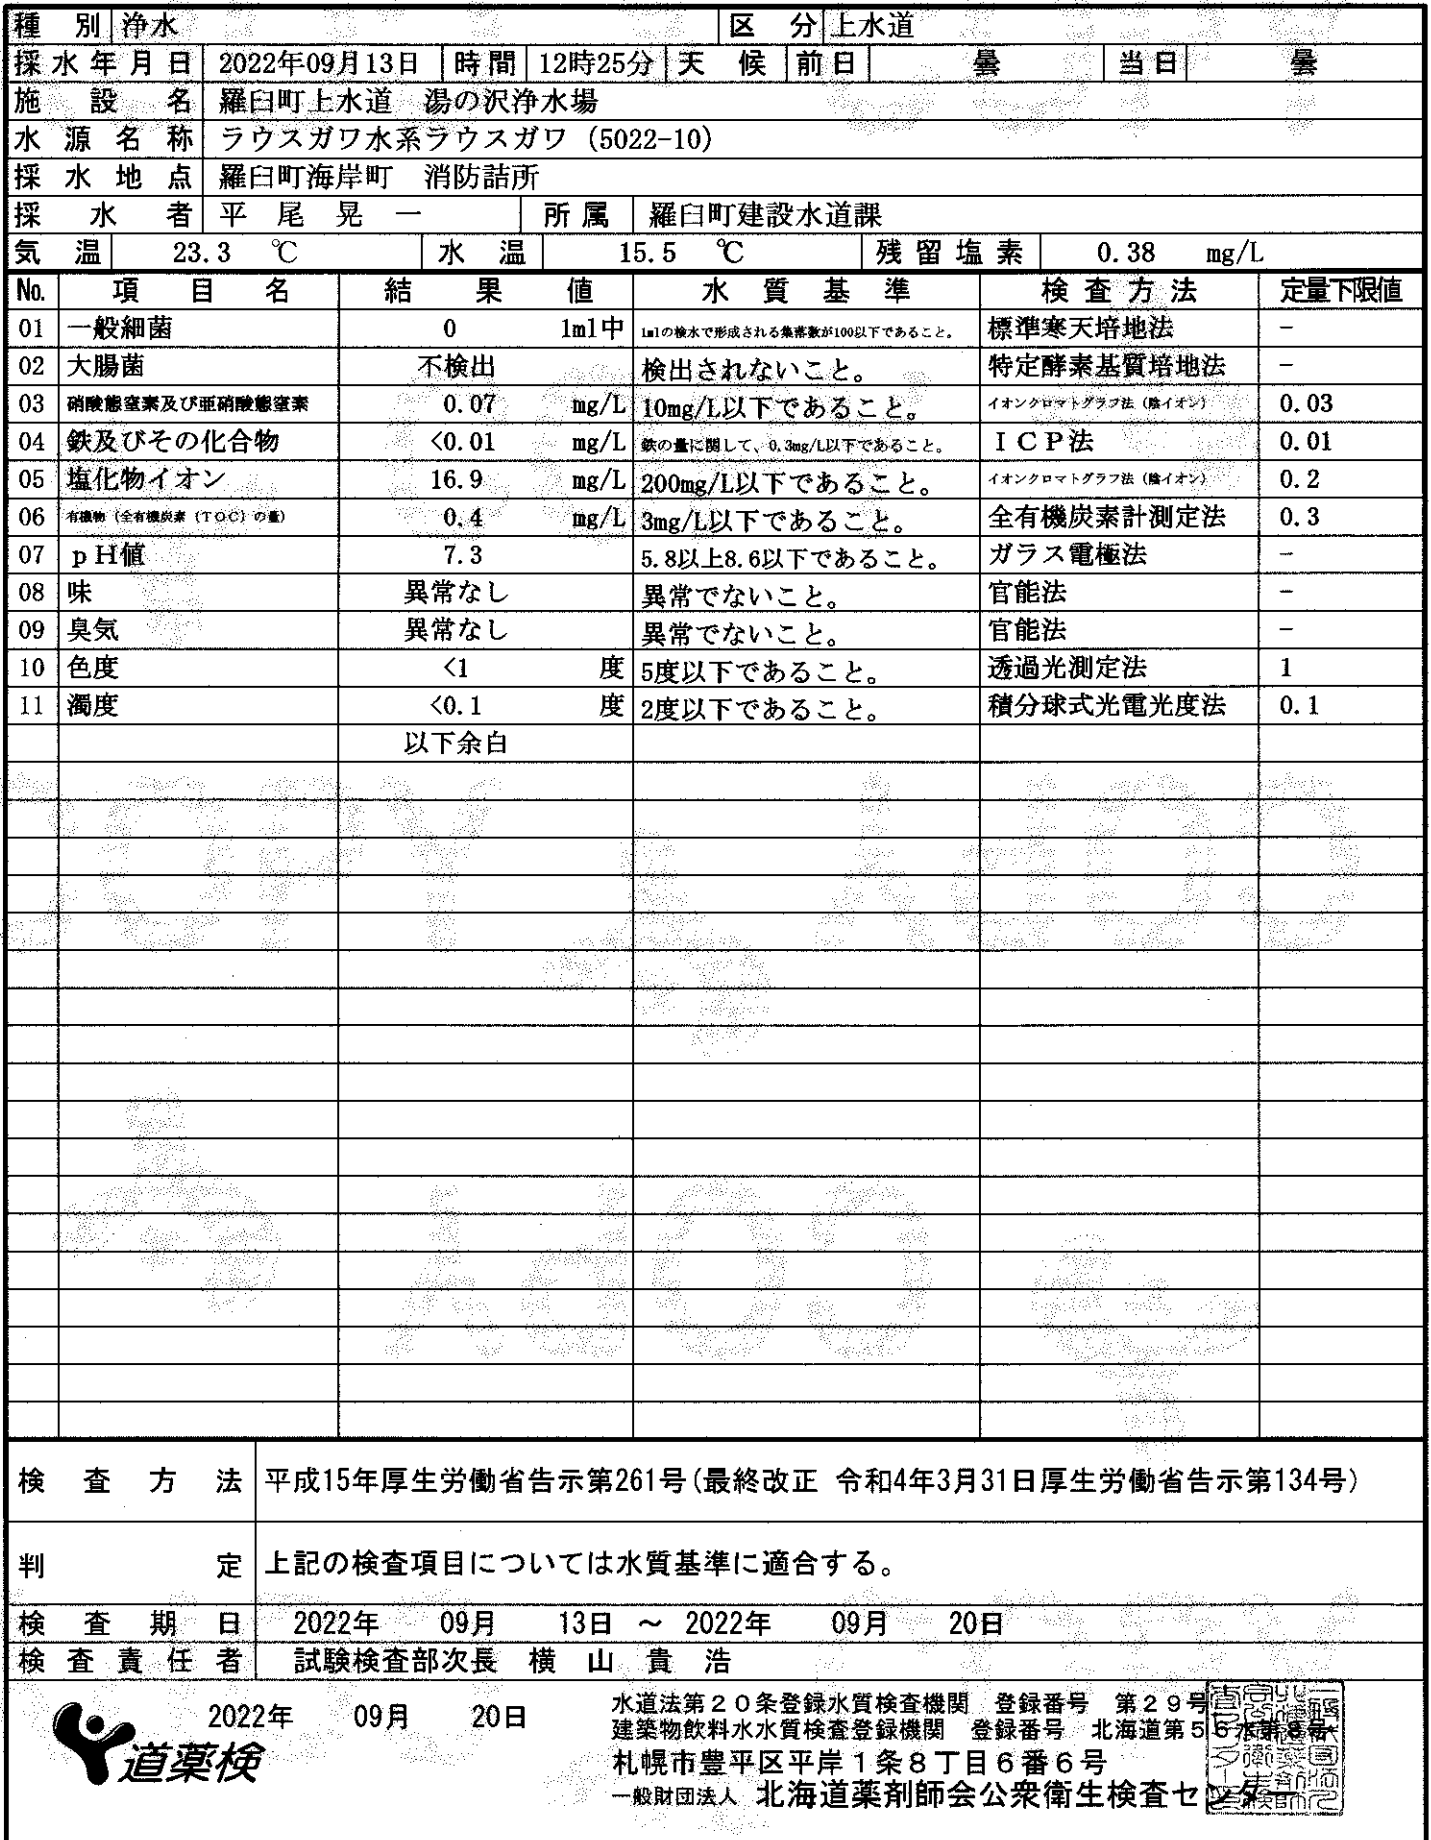 種別 浄水 区分 上水道
採水年月日 2022年09月13日 時間 12時25分 天候 前日 曇 当日 曇
施設名 羅臼町上水道 湯の沢浄水場
水源名称 ラウスガワ水系ラウスガワ (5022-10)
採水地点 羅臼町海岸町 消防詰所
採水者 平尾晃一 所属 羅臼町建設水道課
気温 23.3 ℃ 水温 15.5 ℃ 残留塩素 0.38 mg/L
No. 項目名 結果値 水質基準 検査方法 定量下限値
01 一般細菌 0 1ml中 1mlの検水で形成される集落数が100以下であること。 標準寒天培地法 −
02 大腸菌 不検出 検出されないこと。 特定酵素基質培地法 −
03 硝酸態窒素及び亜硝酸態窒素 0.07 mg/L 10mg/L以下であること。 イオンクロマトグラフ法（陰イオン） 0.03
04 鉄及びその化合物 <0.01 mg/L 鉄の量に関して、0.3mg/L以下であること。 ＩＣＰ法 0.01
05 塩化物イオン 16.9 mg/L 200mg/L以下であること。 イオンクロマトグラフ法（陰イオン） 0.2
06 有機物（全有機炭素（ＴＯＣ）の量） 0.4 mg/L 3mg/L以下であること。 全有機炭素計測定法 0.3
07 ｐH値 7.3 5.8以上8.6以下であること。 ガラス電極法 −
08 味 異常なし 異常でないこと。 官能法 −
09 臭気 異常なし 異常でないこと。 官能法 −
10 色度 <1 度 5度以下であること。 透過光測定法 1
11 濁度 <0.1 度 2度以下であること。 積分球式光電光度法 0.1
以下余白
検査方法 平成15年厚生労働省告示第261号(最終改正 令和4年3月31日厚生労働省告示第134号)
判定 上記の検査項目については水質基準に適合する。
検査期日 2022年 09月 13日 ～ 2022年 09月 20日
検査責任者 試験検査部次長 横山貴浩
2022年 09月 20日
道薬検
水道法第２０条登録水質検査機関 登録番号 第２９号
建築物飲料水水質検査登録機関 登録番号 北海道第５６水第８号
札幌市豊平区平岸１条８丁目６番６号
一般財団法人 北海道薬剤師会公衆衛生検査センター